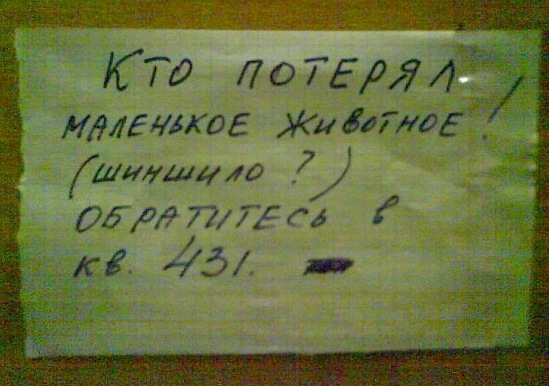 КТО ПОТЕРЯЛ
МАЛЕНЬКОЕ ЖИВОТНОЕ!
(ШИНШИЛО?)
ОБРАТИТЕСЬ В
КВ. 431.